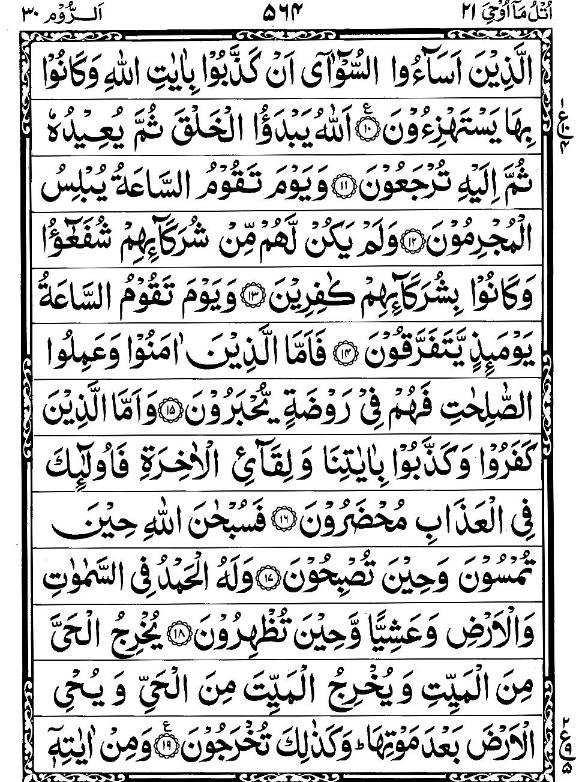 اُتْلُ مَاۤ اُوْحِيَ ٢١ ٥٦٤ اَلــرُّوْم ٣٠
الَّذِيْنَ اَسَآءُوا السُّوْٓاٰۤى اَنْ كَذَّبُوْا بِاٰيٰتِ اللّٰهِ وَكَانُوْا
بِهَا يَسْتَهْزِءُوْنَ ۝١٠ اَللّٰهُ يَبْدَؤُا الْخَلْقَ ثُمَّ يُعِيْدُهٗ
ثُمَّ اِلَيْهِ تُرْجَعُوْنَ ۝١١ وَيَوْمَ تَقُوْمُ السَّاعَةُ يُبْلِسُ
الْمُجْرِمُوْنَ ۝١٢ وَلَمْ يَكُنْ لَّهُمْ مِّنْ شُرَكَآئِهِمْ شُفَعٰٓؤُا
وَكَانُوْا بِشُرَكَآئِهِمْ كٰفِرِيْنَ ۝١٣ وَيَوْمَ تَقُوْمُ السَّاعَةُ
يَوْمَئِذٍ يَّتَفَرَّقُوْنَ ۝١٤ فَاَمَّا الَّذِيْنَ اٰمَنُوْا وَعَمِلُوا
الصّٰلِحٰتِ فَهُمْ فِيْ رَوْضَةٍ يُّحْبَرُوْنَ ۝١٥ وَاَمَّا الَّذِيْنَ
كَفَرُوْا وَكَذَّبُوْا بِاٰيٰتِنَا وَلِقَآئِ الْاٰخِرَةِ فَاُولٰٓئِكَ
فِي الْعَذَابِ مُحْضَرُوْنَ ۝١٦ فَسُبْحٰنَ اللّٰهِ حِيْنَ
تُمْسُوْنَ وَحِيْنَ تُصْبِحُوْنَ ۝١٧ وَلَهُ الْحَمْدُ فِي السَّمٰوٰتِ
وَالْاَرْضِ وَعَشِيًّا وَّحِيْنَ تُظْهِرُوْنَ ۝١٨ يُخْرِجُ الْحَيَّ
مِنَ الْمَيِّتِ وَيُخْرِجُ الْمَيِّتَ مِنَ الْحَيِّ وَيُحْيِ
الْاَرْضَ بَعْدَ مَوْتِهَا ؕ وَكَذٰلِكَ تُخْرَجُوْنَ ۝١٩ وَمِنْ اٰيٰتِهٖۤ